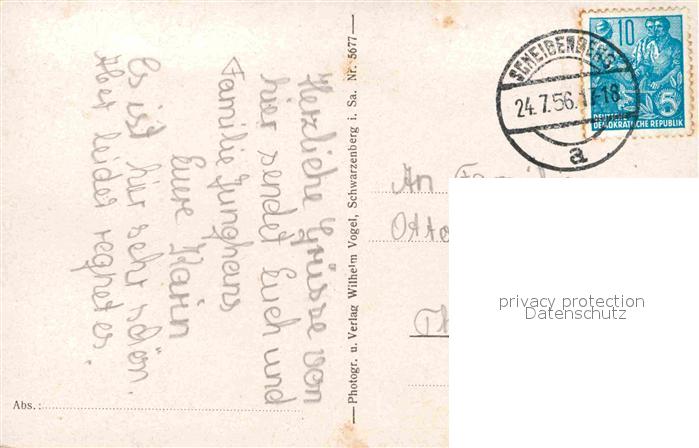 Herzliche Grüsse von
hier sendet Euch und
Familie Junghans
Eure Karin
Es ist hier sehr schön.
Aber leider regnet es.
Abs.:
Photogr. u. Verlag Wilhelm Vogel, Schwarzenberg i. Sa. Nr. 5677
SCHEIBENBERG
24.7.56.17-18
a
10
5
DEUTSCHE
DEMOKRATISCHE REPUBLIK
An
Otto
privacy protection
Datenschutz